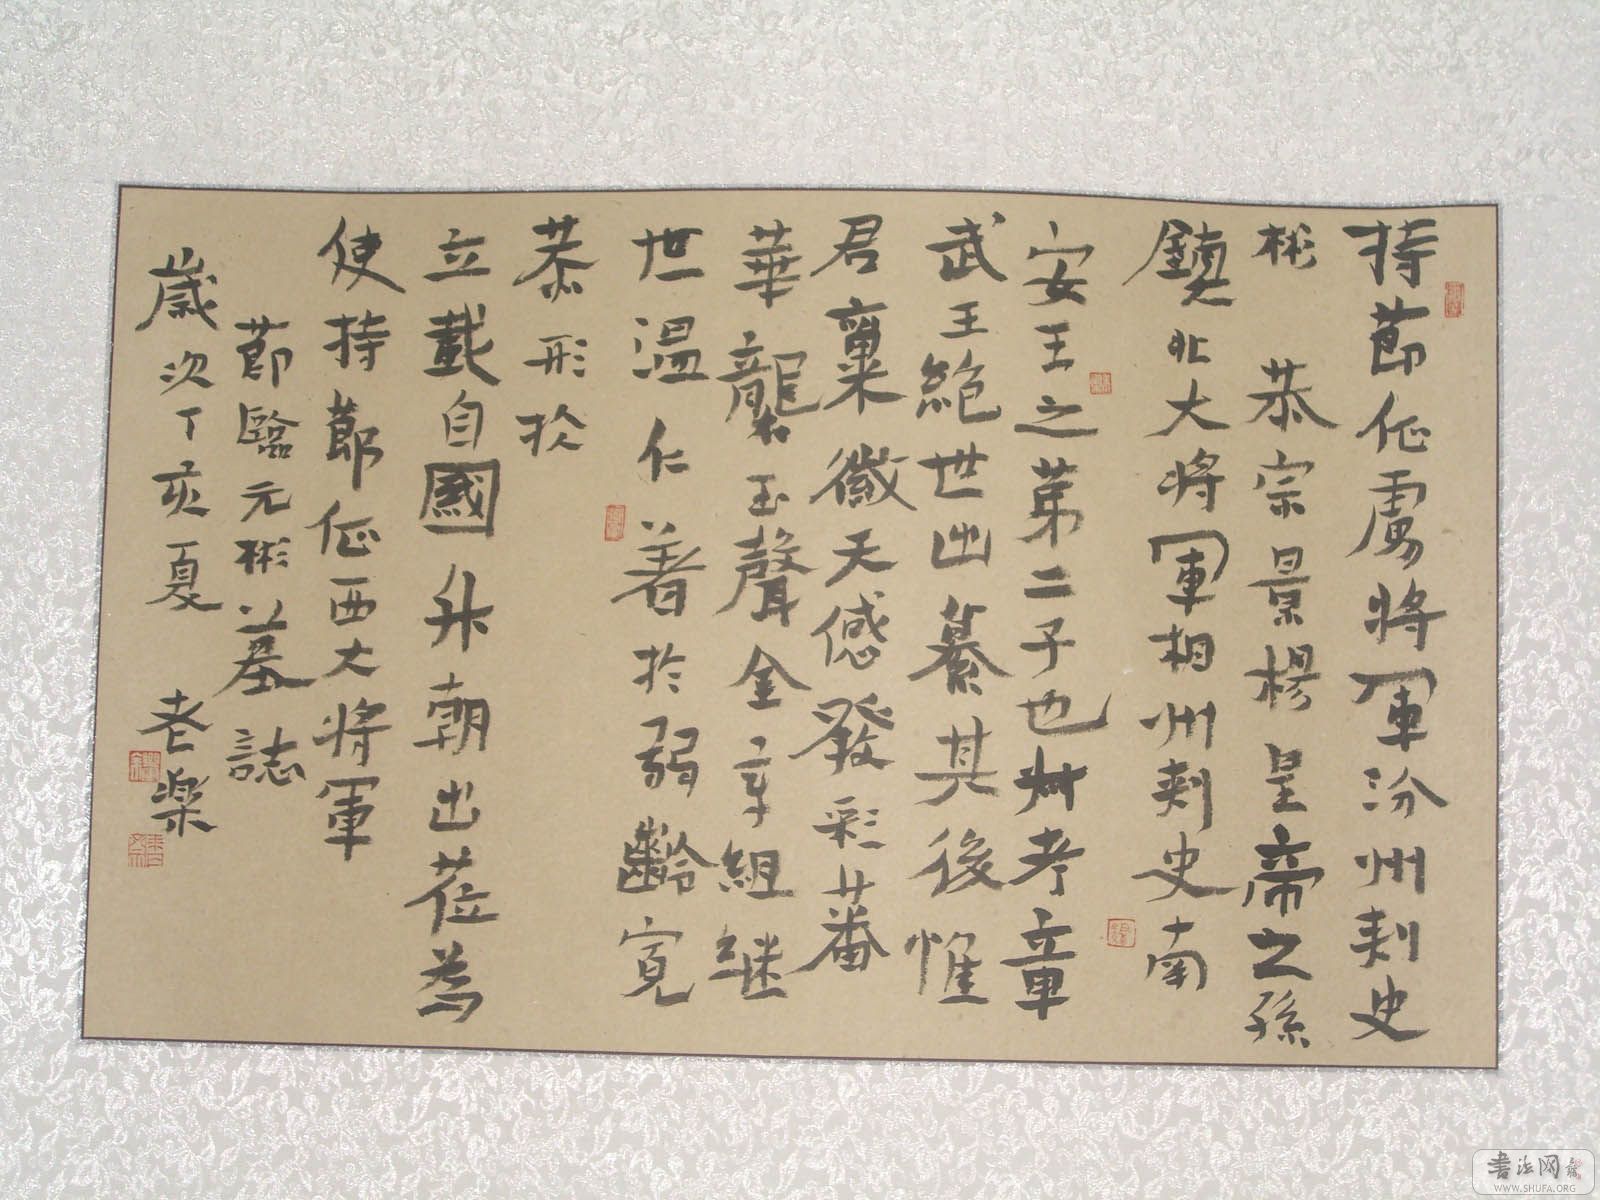 持節征虜將軍汾州刺史
彬 恭宗景穆皇帝之孫
鎮北大將軍相州刺史南
安王之第二子也叔考章
武王絕世出纂其後惟
君稟徽天感發彩蕃
華聲玉聲金享組繼
世溫仁著於弱齡寬
恭形於
立載自國升朝出莅為
使持節征西大將軍
節臨元彬墓誌
歲次丁亥夏 老樂
書法网
WWW.SHUFA.ORG